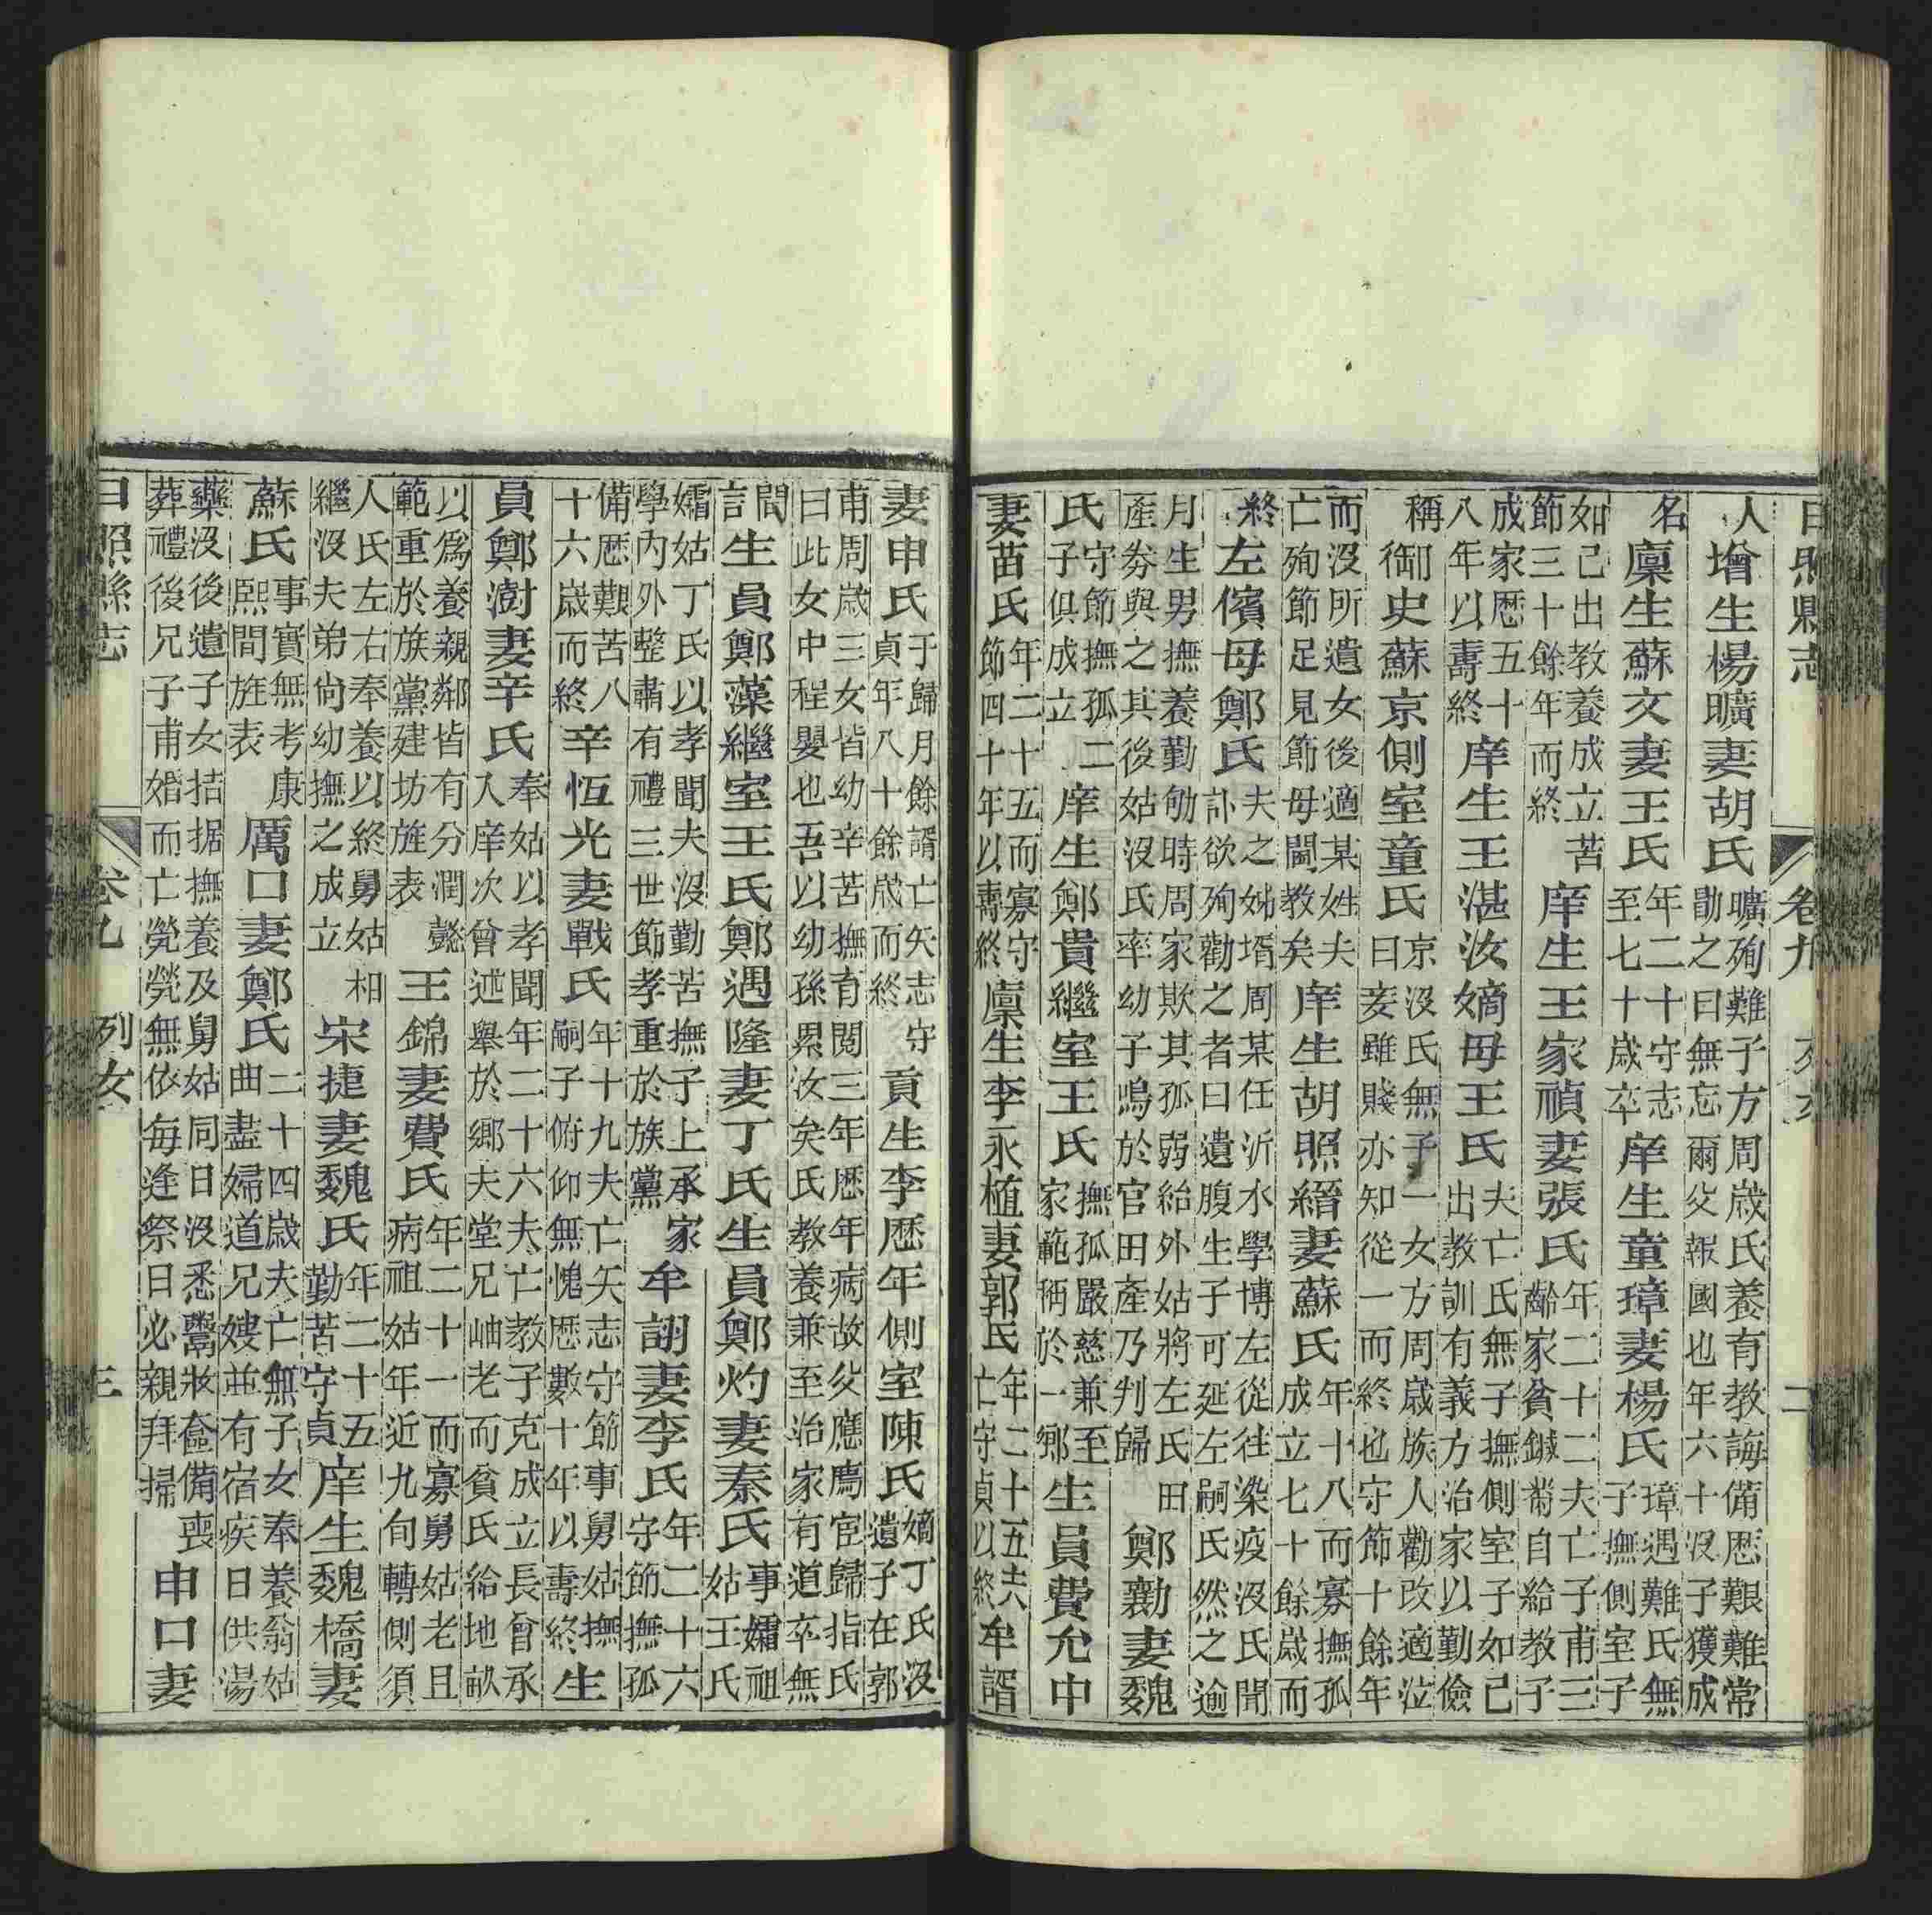 日照縣志 卷九 列女 二
人增生楊曠妻胡氏曠殉難子方周歲氏養育教誨備歷艱難常勖之曰無忘爾父報國也年六十沒子獲成
名廩生蘇文妻王氏年二十守志至七十歲卒庠生童璋妻楊氏璋遇難氏無子撫側室子
如己出教養成立苦節三十餘年而終庠生王家禎妻張氏年二十二夫亡子甫三齡家貧鍼黹自給教子
成家歷五十八年以壽終庠生王湛汝嫡母王氏夫亡氏無子撫側室子如己出教訓有義方治家以勤儉
稱御史蘇京側室童氏京沒氏無子一女方周歲族人勸改適泣曰妾雖賤亦知從一而終也守節十餘年
而沒所遺女後適某姓夫亡殉節足見節母閫教矣庠生胡照縉妻蘇氏年十八而寡撫孤成立七十餘歲而
終左儐母鄭氏夫之姊壻周某任沂水學博左從往染疫沒氏聞訃欲殉勸之者曰遺腹生子可延左嗣氏然之逾
月生男撫養勤劬時周家欺其孤弱紿外姑將左氏田產劵與之其後姑沒氏率幼子鳴於官田產乃判歸鄭勷妻魏
氏守節撫孤二子俱成立庠生鄭貴繼室王氏撫孤嚴慈兼至家範稱於一鄉生員費允中
妻苗氏年二十五而寡守節四十年以壽終廩生李永植妻郭氏年二十五夫亡守貞以終牟諝
妻申氏于歸月餘諝亡矢志守貞年八十餘歲而終貢生李歷年側室陳氏嫡丁氏沒遺子在郭
甫周歲三女皆幼辛苦撫育閱三年歷年病故父應廌宦歸指氏曰此女中程嬰也吾以幼孫累汝矣氏教養兼至治家有道卒無
間言生員鄭藻繼室王氏鄭遇隆妻丁氏生員鄭灼妻秦氏事孀祖姑王氏
孀姑丁氏以孝聞夫沒勤苦撫子上承家學內外整肅有禮三世節孝重於族黨牟詡妻李氏年二十六守節撫孤
備歷艱苦八十六歲而終辛恆光妻戰氏年十九夫亡矢志守節事舅姑撫嗣子俯仰無愧歷數十年以壽終生
員鄭澍妻辛氏奉姑以孝聞年二十六夫亡教子克成立長曾承入庠次曾述舉於鄉夫堂兄岫老而貧氏給地畝
以爲養親鄰皆有分潤懿範重於族黨建坊旌表王錦妻費氏年二十一而寡舅姑老且病祖姑年近九旬轉側須
人氏左右奉養以終舅姑相繼沒夫弟尙幼撫之成立宋捷妻魏氏年二十五勤苦守貞庠生魏橋妻
蘇氏事實無考康熙間旌表厲口妻鄭氏二十四歲夫亡無子女奉養翁姑曲盡婦道兄嫂並有宿疾日供湯
藥沒後遺子女拮据撫養及舅姑同日沒悉鬻妝奩備喪葬禮後兄子甫婚而亡煢煢無依每逢祭日必親拜掃申口妻
日照縣志 卷九 列女 三